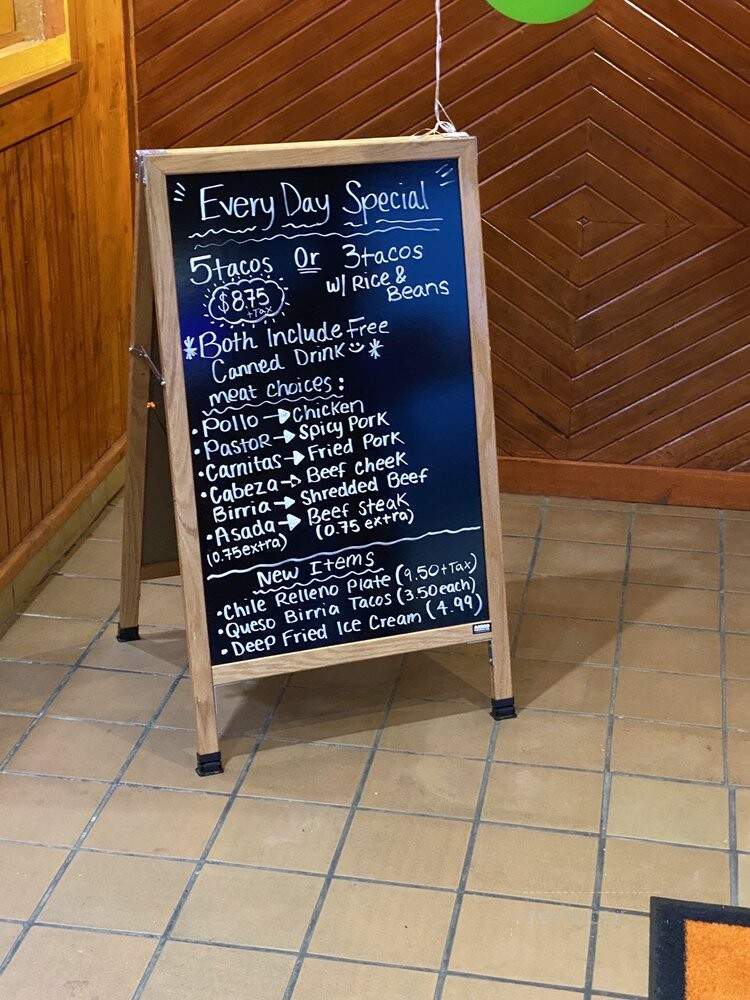 Every Day Special
5tacos Or 3tacos
$8.75 w/ Rice &
+Tax Beans
*Both Include Free
Canned Drink *
meat choices:
• Pollo → Chicken
• Pastor → Spicy Pork
• Carnitas → Fried Pork
• Cabeza → Beef Cheek
Birria → Shredded Beef
• Asada → Beef Steak
(0.75 extra) (0.75 extra)
New Items
• Chile Relleno Plate (9.50+Tax)
• Queso Birria Tacos (3.50 each)
• Deep Fried Ice Cream (4.99)